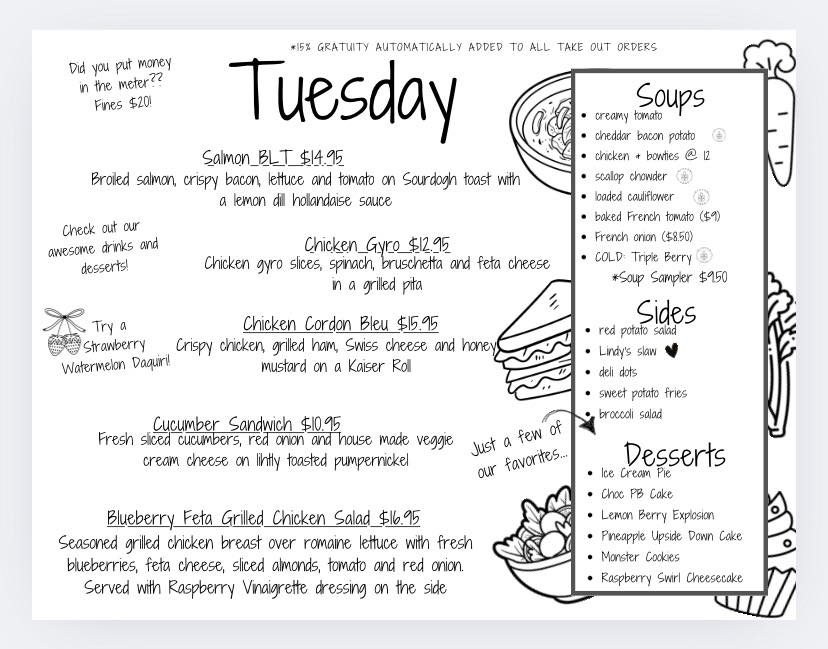 *15% GRATUITY AUTOMATICALLY ADDED TO ALL TAKE OUT ORDERS
Did you put money
in the meter??
Fines $20!
Tuesday
Salmon BLT $14.95
Broiled salmon, crispy bacon, lettuce and tomato on Sourdogh toast with
a lemon dill hollandaise sauce
Check out our
awesome drinks and
desserts!
Chicken Gyro $12.95
Chicken gyro slices, spinach, bruschetta and feta cheese
in a grilled pita
Try a
Strawberry
Watermelon Daquiri!
Chicken Cordon Bleu $15.95
Crispy chicken, grilled ham, Swiss cheese and honey
mustard on a Kaiser Roll
Cucumber Sandwich $10.95
Fresh sliced cucumbers, red onion and house made veggie
cream cheese on lihtly toasted pumpernickel
Just a few of
our favorites...
Blueberry Feta Grilled Chicken Salad $16.95
Seasoned grilled chicken breast over romaine lettuce with fresh
blueberries, feta cheese, sliced almonds, tomato and red onion.
Served with Raspberry Vinaigrette dressing on the side
Soups
• creamy tomato
• cheddar bacon potato
• chicken + bowties @ 12
• scallop chowder
• loaded cauliflower
• baked French tomato ($9)
• French onion ($8.50)
• COLD: Triple Berry
*Soup Sampler $9.50
Sides
• red potato salad
• Lindy's slaw
• deli dots
• sweet potato fries
• broccoli salad
Desserts
• Ice Cream Pie
• Choc PB Cake
• Lemon Berry Explosion
• Pineapple Upside Down Cake
• Monster Cookies
• Raspberry Swirl Cheesecake